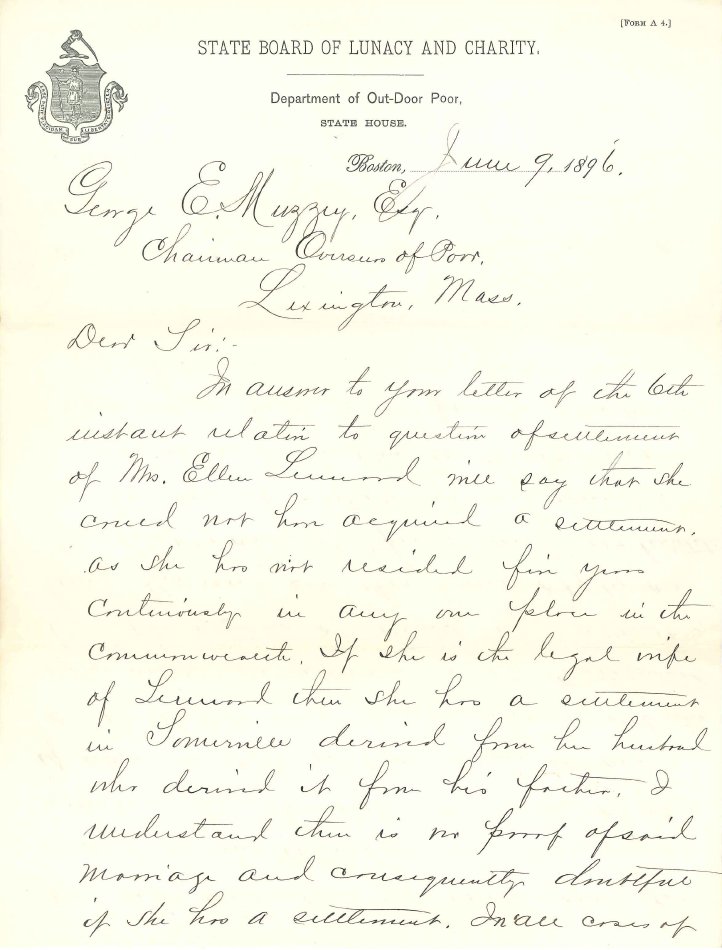 [FORM A 4.]
STATE BOARD OF LUNACY AND CHARITY.
Department of Out-Door Poor,
STATE HOUSE.
Boston, June 9, 1896.
George E. Muzzey, Esq.
Chairman Overseers of Poor.
Lexington, Mass.
Dear Sir:-
In answer to your letter of the 6th
instant relation to question of settlement
of Mrs. Ellen will say that she
could not have acquired a settlement.
as she has not resided five years
continuously in any one place in the
Commonwealth. If she is the legal wife
of then she has a settlement
in Somerville derived from her husband
who derived it from his father. I
understand there is no proof of said
marriage and consequently doubtful
if she has a settlement. In all cases of